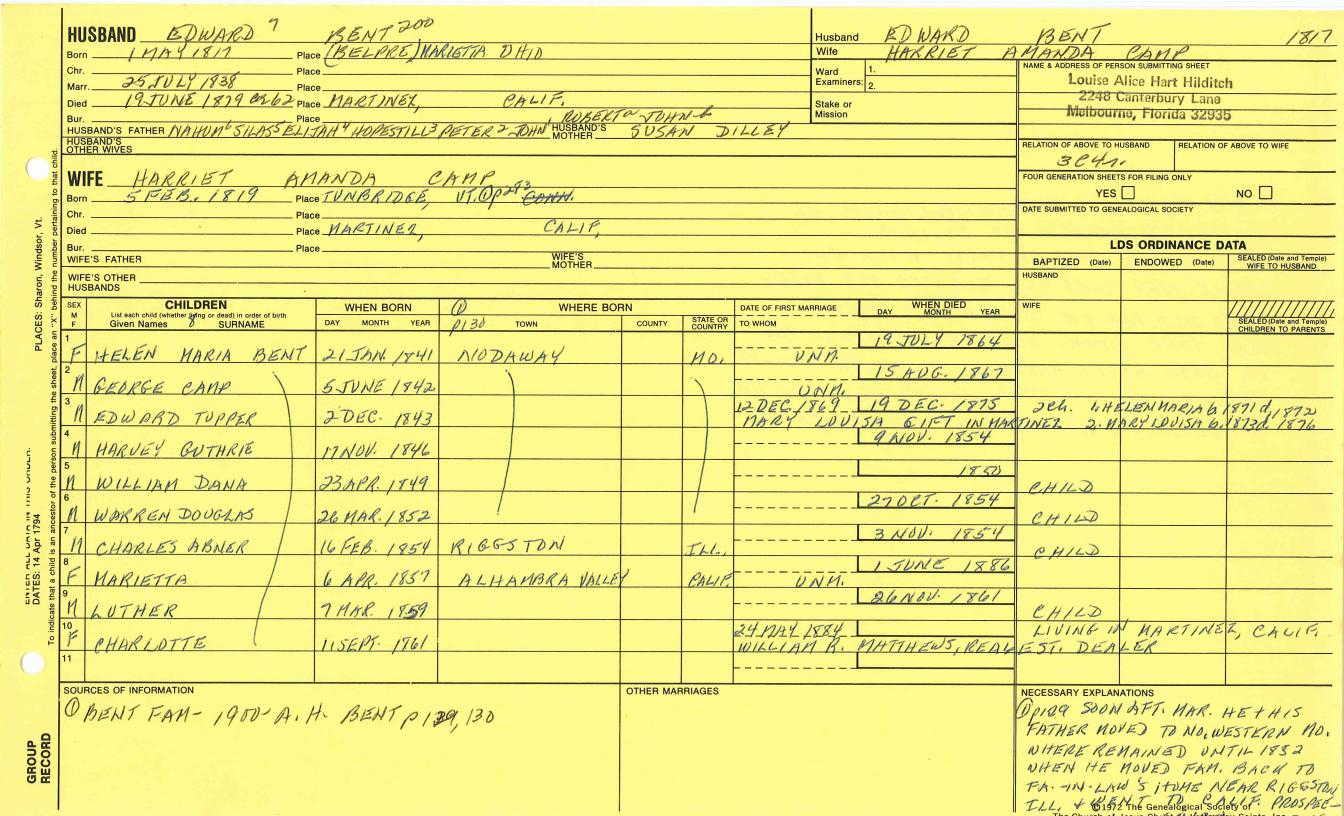 HUSBAND EDWARD 7 BENT 200
Born 1 MAY 1817 Place (BELPRE) MARIETTA OHIO
Chr. Place
Marr. 25 JULY 1838 Place
Died 19 JUNE 1879 62 Place MARTINEZ, CALIF.
Bur. Place
ROBERT JOHN
HUSBAND'S FATHER NAHUM 6 SILAS 5 ELIJAH 4 HOPESTILL 3 PETER 2 JOHN 1 HUSBAND'S MOTHER SUSAN DILLEY
HUSBAND'S OTHER WIVES
WIFE HARRIET AMANDA CAMP
Born 5 FEB. 1819 Place TUNBRIDGE, VT. ① p293 CONN.
Chr. Place
Died Place MARTINEZ, CALIF,
Bur. Place
WIFE'S FATHER WIFE'S MOTHER
WIFE'S OTHER HUSBANDS
Husband EDWARD BENT 1817
Wife HARRIET AMANDA CAMP
Ward Examiners: 1.
2.
Stake or Mission
NAME & ADDRESS OF PERSON SUBMITTING SHEET
Louise Alice Hart Hilditch
2248 Canterbury Lane
Melbourne, Florida 32935
RELATION OF ABOVE TO HUSBAND RELATION OF ABOVE TO WIFE
3C4r.
FOUR GENERATION SHEETS FOR FILING ONLY
YES NO
DATE SUBMITTED TO GENEALOGICAL SOCIETY
LDS ORDINANCE DATA
BAPTIZED (Date) ENDOWED (Date) SEALED (Date and Temple) WIFE TO HUSBAND
HUSBAND
WIFE
SEALED (Date and Temple) CHILDREN TO PARENTS
SEX M F CHILDREN WHEN BORN ① WHERE BORN DATE OF FIRST MARRIAGE WHEN DIED
List each child (whether living or dead) in order of birth
Given Names SURNAME DAY MONTH YEAR p130 TOWN COUNTY STATE OR COUNTRY TO WHOM DAY MONTH YEAR
1 19 JULY 1864
F HELEN MARIA BENT 21 JAN. 1841 NODAWAY MO. UNM.
2 15 AUG. 1867
M GEORGE CAMP 5 JUNE 1842 UNM.
3 12 DEC. 1869 19 DEC. 1875 2 ch. 1. HELEN MARIA b. 1871 d. 1872
M EDWARD TUPPER 2 DEC. 1843 MARY LOUISA GIFT IN MARTINEZ 2. MARY LOUISA b. 1873 d. 1876
4 9 NOV. 1854
M HARVEY GUTHRIE 17 NOV. 1846
5 1850
M WILLIAM DANA 23 APR. 1849 CHILD
6 27 OCT. 1854
M WARREN DOUGLAS 26 MAR. 1852 CHILD
7 3 NOV. 1854
M CHARLES ABNER 16 FEB. 1854 RIGGSTON ILL. CHILD
8 1 JUNE 1886
F MARIETTA 6 APR. 1857 ALHAMBRA VALLEY CALIF. UNM.
9 26 NOV. 1861
M LUTHER 7 MAR. 1859 CHILD
10 24 MAY 1884 LIVING IN MARTINEZ, CALIF.
F CHARLOTTE 11 SEPT. 1761 WILLIAM R. MATTHEWS, REAL EST. DEALER
11
SOURCES OF INFORMATION
① BENT FAM- 1900- A.H. BENT p 129, 130
OTHER MARRIAGES
NECESSARY EXPLANATIONS
① p129 SOON AFT. MAR. HE + HIS
FATHER MOVED TO NO. WESTERN MO.
WHERE REMAINED UNTIL 1852
WHEN HE MOVED FAM. BACK TO
FA.-IN-LAW'S HOME NEAR RIGGSTON
ILL. + WENT TO CALIF. PROSPEC-
© 1972 The Genealogical Society of
The Church of Jesus Christ of
PLACES: Sharon, Windsor, Vt.
To indicate that a child is an ancestor of the person submitting the sheet, place an "X" behind the number pertaining to that child.
ENTER ALL DATA IN THIS ORDER:
DATES: 14 Apr 1794
GROUP RECORD